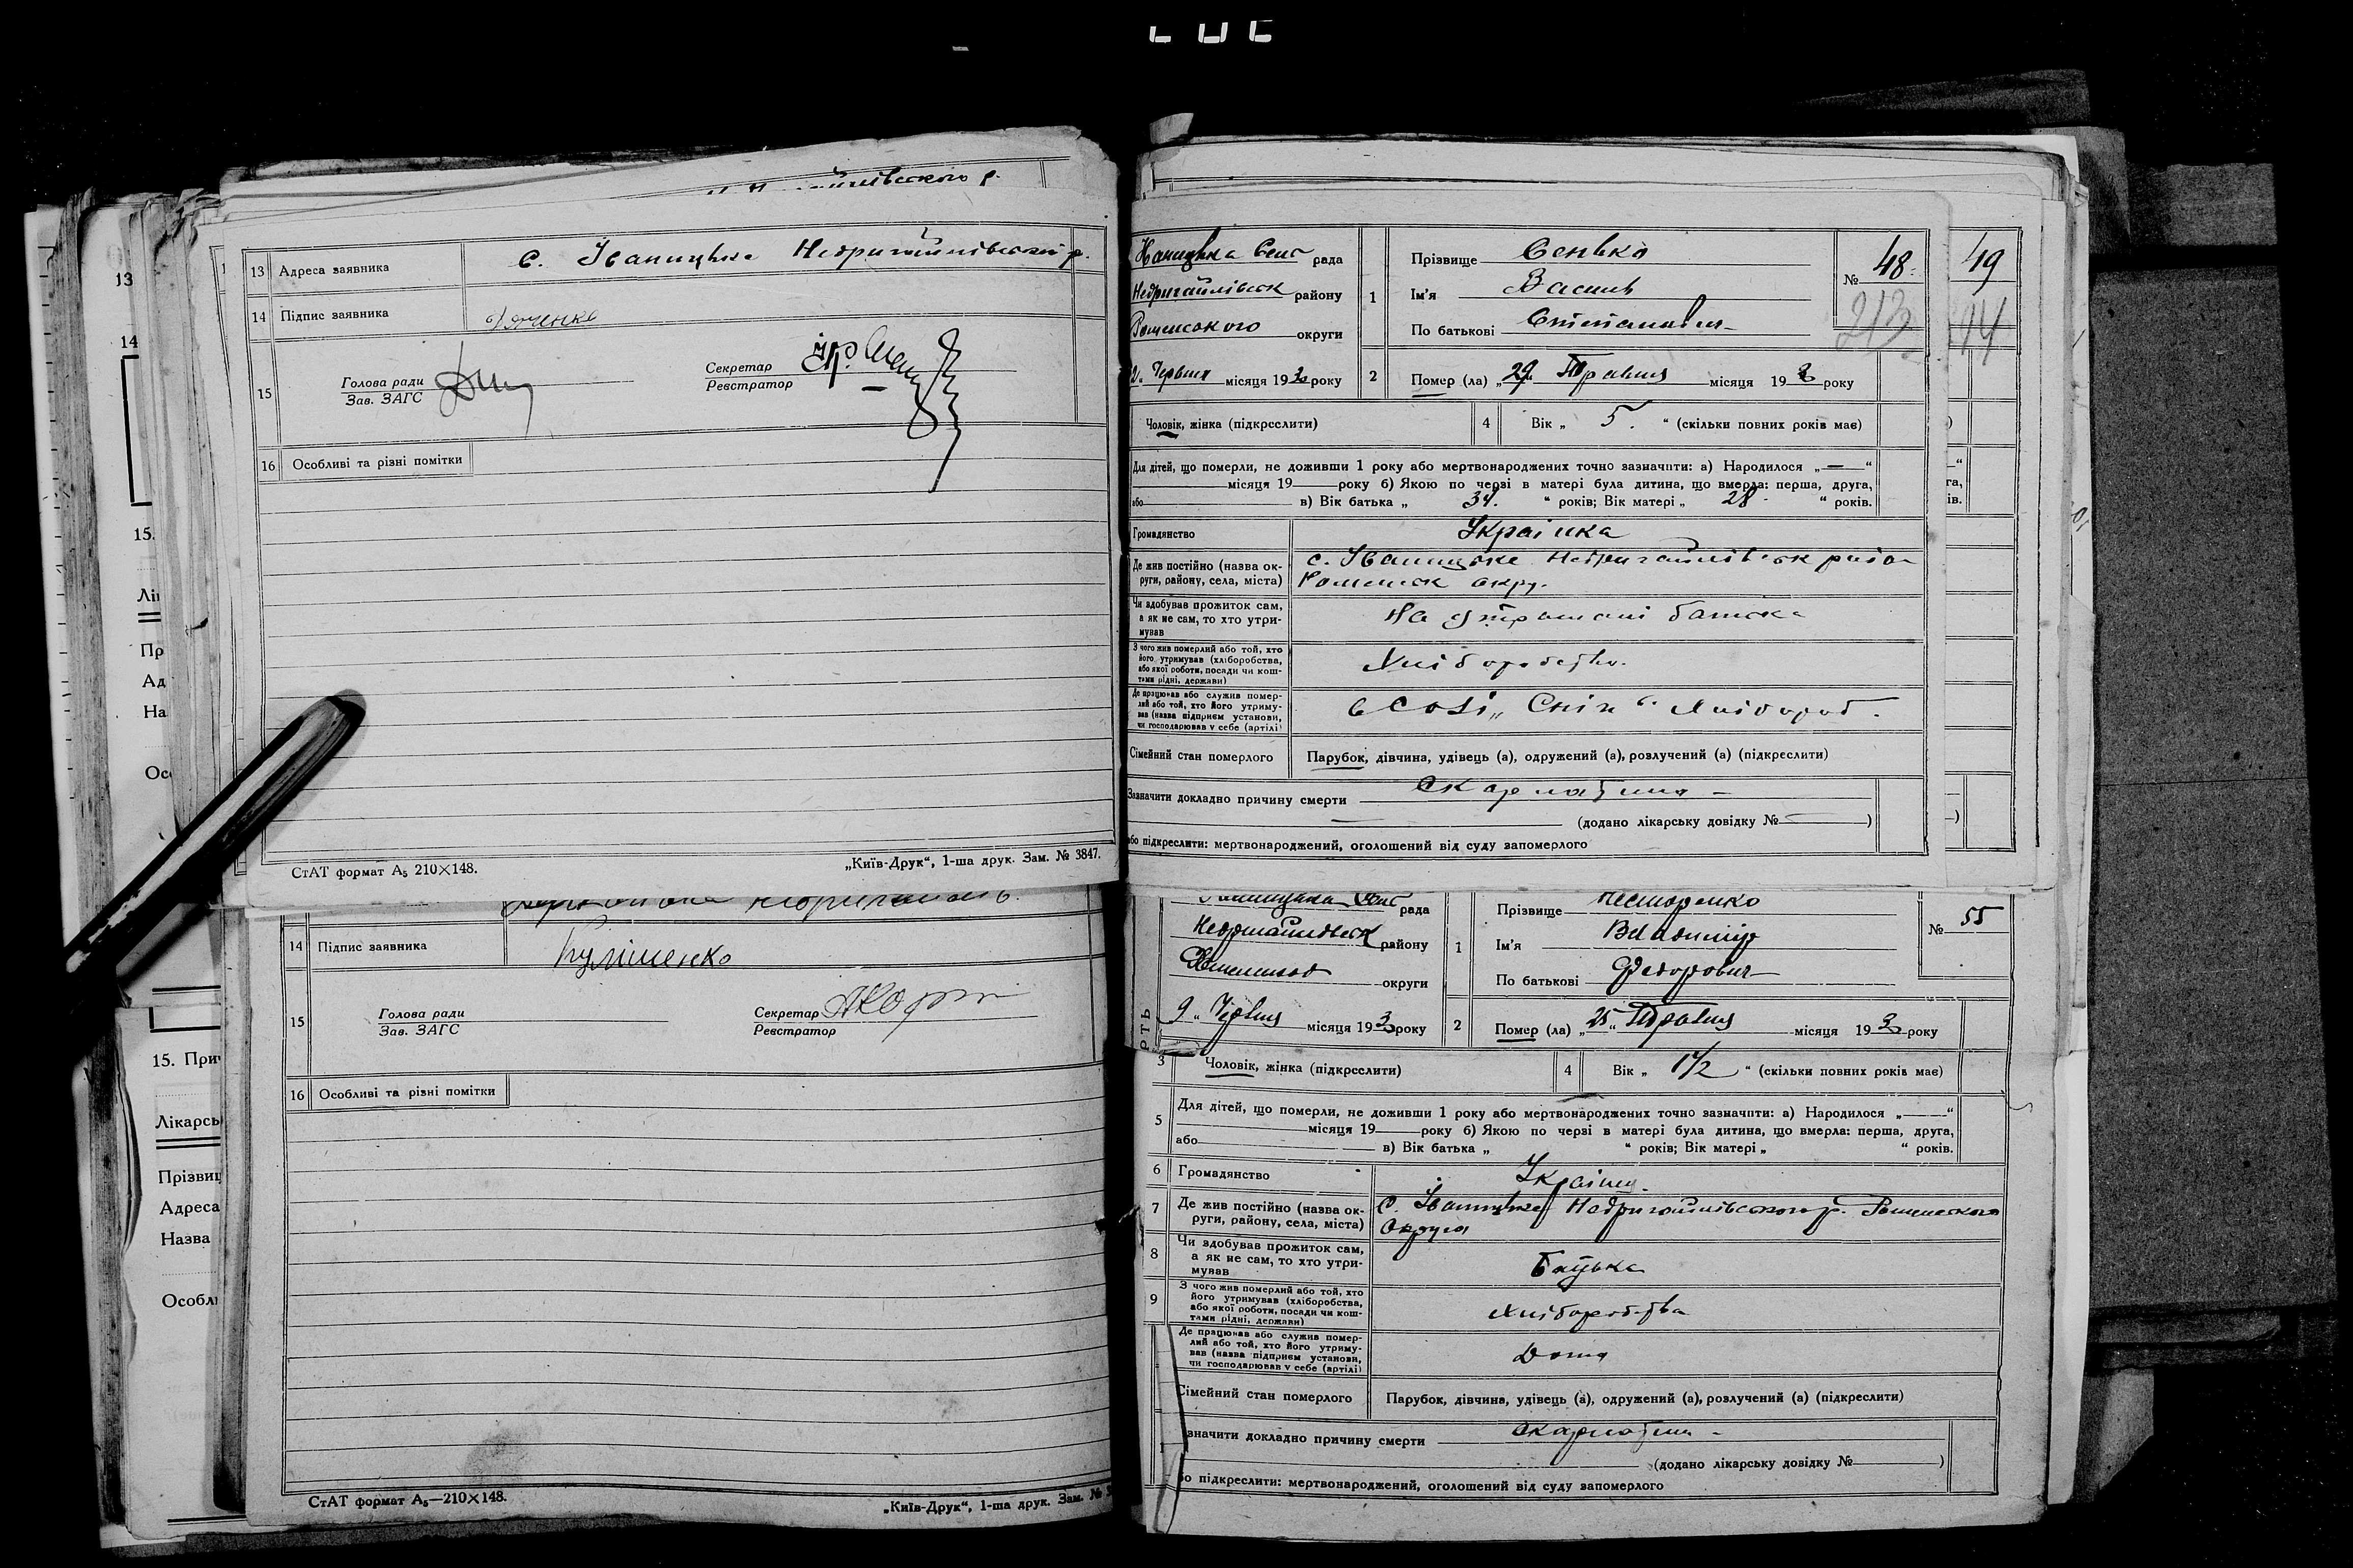 13 Адреса заявника с. Іваницьке Недригайлівський р.
14 Підпис заявника
15 Голова ради Секретар
Зав. ЗАГС Реєстратор
16 Особливі та різні помітки
СтАТ формат А5 210×148. „Київ-Друк“, 1-ша друк. Зам. № 3847.
14 Підпис заявника Кулішенко
15 Голова ради Секретар
Зав. ЗАГС Реєстратор
16 Особливі та різні помітки
СтАТ формат А5—210×148. „Київ-Друк“, 1-ша друк. Зам. №
13
14
15.
Пр
Ад
На
15. При
Лікарсь
Прізвищ
Адреса
Назва
Особл
рада
Недригайлівськ району
Роменського округи
Червня місяця 193 року
1 Прізвище Сенько
Ім'я Василь
По батькові Степанович
№ 48
213
49
2 Помер (ла) „29“ Травня місяця 193 року
Чоловік, жінка (підкреслити) 4 Вік „ 5. “ (скільки повних років має)
Для дітей, що померли, не доживши 1 року або мертвонароджених точно зазначити: а) Народилося „—“
місяця 19 року б) Якою по черзі в матері була дитина, що вмерла: перша, друга,
або в) Вік батька „ 34. “ років; Вік матері „ 28 “ років.
Громадянство Українка
Де жив постійно (назва ок- с. Іваницьке Недригайлівськ район
руги, району, села, міста) Роменськ окру.
Чи здобував прожиток сам, На утриманні батька
а як не сам, то хто утри-
мував
З чого жив померлий або той, хто Хліборобство.
його утримував (хліборобства,
або якої роботи, посади чи кош-
тами рідні, держави)
Де працював або служив помер- в СОЗі „Сніп“ хлібороб.
лий або той, хто його утриму-
вав (назва підприєм установи,
чи господарював у себе (артілі)
Сімейний стан померлого Парубок, дівчина, удівець (а), одружений (а), розлучений (а) (підкреслити)
Зазначити докладно причину смерти Скарлатина
(додано лікарську довідку № )
або підкреслити: мертвонароджений, оголошений від суду запомерлого
рада
Недригайлівськ району
округи
9 „ Червня місяця 193 року
1 Прізвище Несторенко
Ім'я Владимір
По батькові Федорович
№ 55
2 Помер (ла) „25“ Травня місяця 193 року
3 Чоловік, жінка (підкреслити) 4 Вік „ 1½ “ (скільки повних років має)
5 Для дітей, що померли, не доживши 1 року або мертвонароджених точно зазначити: а) Народилося „ “
місяця 19 року б) Якою по черзі в матері була дитина, що вмерла: перша, друга,
або в) Вік батька „ “ років; Вік матері „ “ років.
6 Громадянство
7 Де жив постійно (назва ок- С. Іваницьке Недригайлівського р. Роменського
руги, району, села, міста) Округи
8 Чи здобував прожиток сам, Батька
а як не сам, то хто утри-
мував
9 З чого жив померлий або той, хто Хліборобства
його утримував (хліборобства,
або якої роботи, посади чи кош-
тами рідні, держави)
Де працював або служив помер- Дома
лий або той, хто його утриму-
вав (назва підприєм установи,
чи господарював у себе (артілі)
Сімейний стан померлого Парубок, дівчина, удівець (а), одружений (а), розлучений (а) (підкреслити)
значити докладно причину смерти Скарлатина
(додано лікарську довідку № )
бо підкреслити: мертвонароджений, оголошений від суду запомерлого